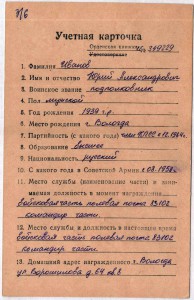 Учетная карточка
1. Фамилия Иванов
2. Имя и отчество Юрий Александрович
3. Воинское звание подполковник
4. Пол мужской
5. Год рождения 1939 г.р.
6. Место рождения г. Вологда
7. Партийность (с какого года) член КПСС
8. Образование высшее
9. Национальность русский
10. С какого года в Советской Армии с 1958г.
11. Место службы
войсковая часть полевая почта 83102
командир части.
12. Место службы и должность в настоящее время
войсковая часть полевая почта 83102
командир части.
13. Домашний адрес г. Вологда
ул Ворошилова д. 64 кв 8